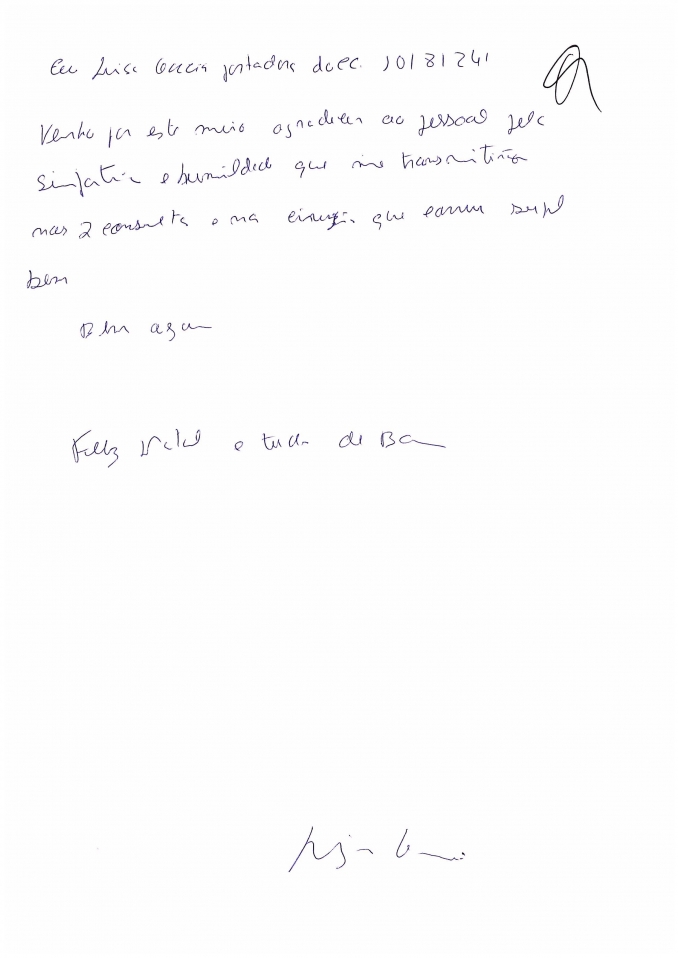 Eu Luisa Garcia portadora do CC. 10181241
Venho por este meio agradecer ao pessoal pela
simpatia e humildade que me transmitirão
nas 2 consulta e na cirurgia que correu
bem
Bem
Feliz Natal e tudo de Bom